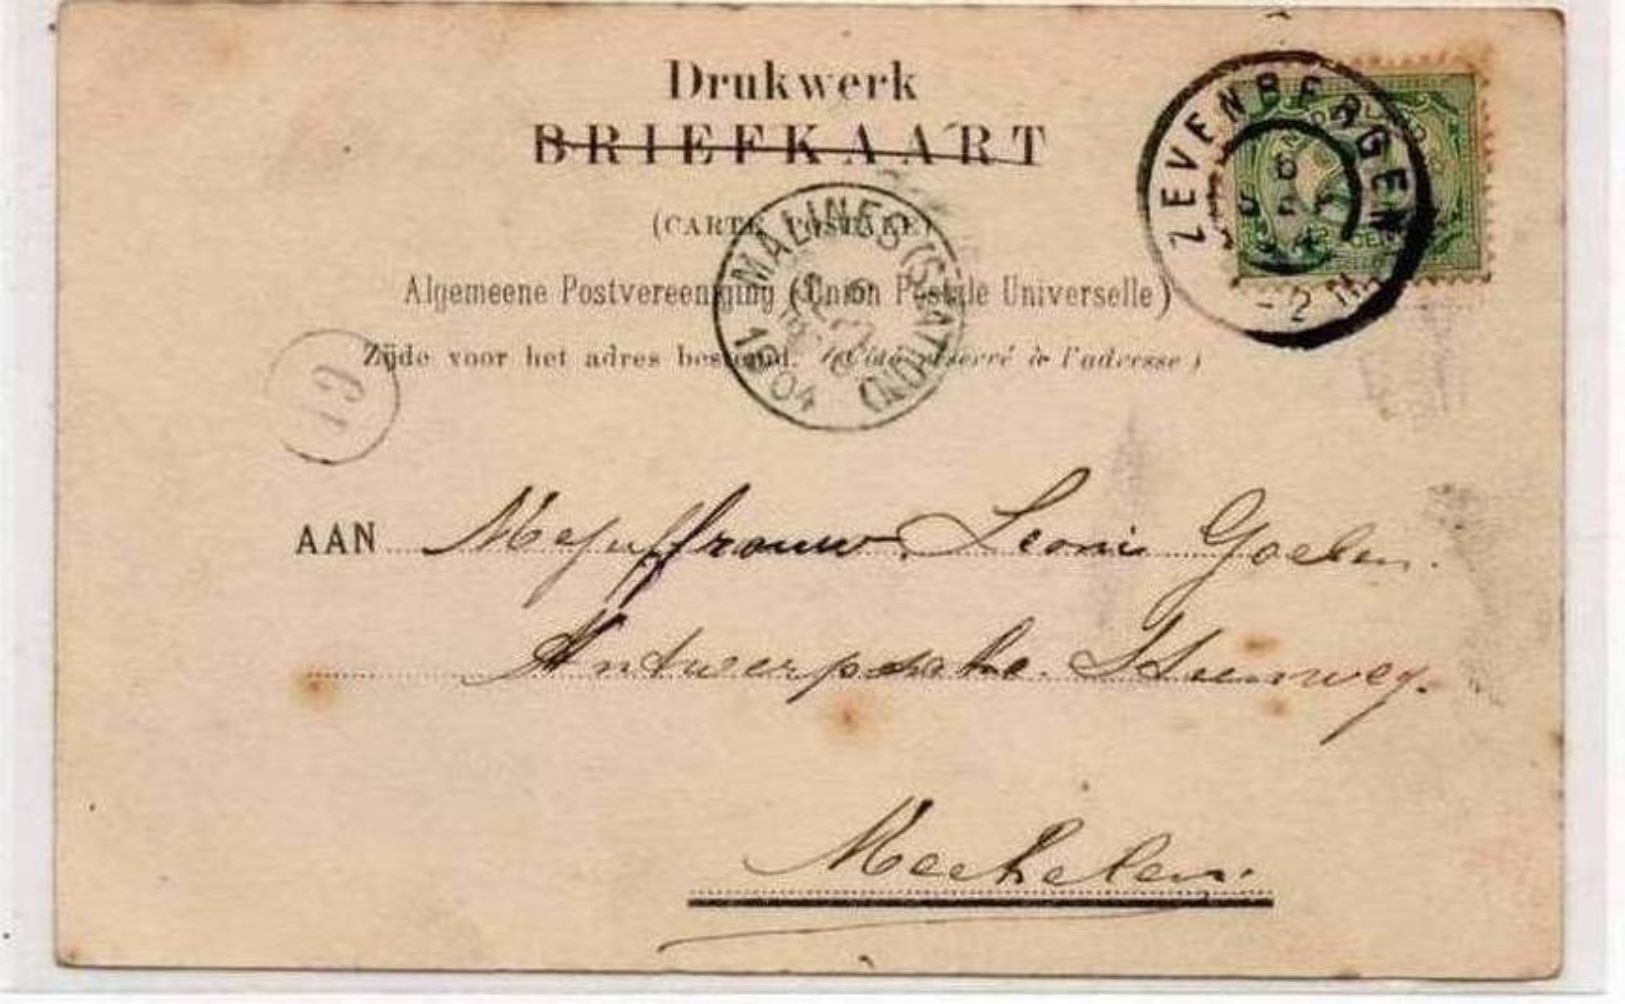 Drukwerk
BRIEFKAART
(CARTE POSTALE)
Algemeene Postvereeniging (Union Postale Universelle)
Zijde voor het adres bestemd. (Côté réservé à l'adresse)
ZEVENBERGEN
6
4
- 2 N
MALINES (STATION)
1904
19
AAN Mejuffrouw Leonie Goelen.
Antwerpsche Steenweg.
Mechelen.